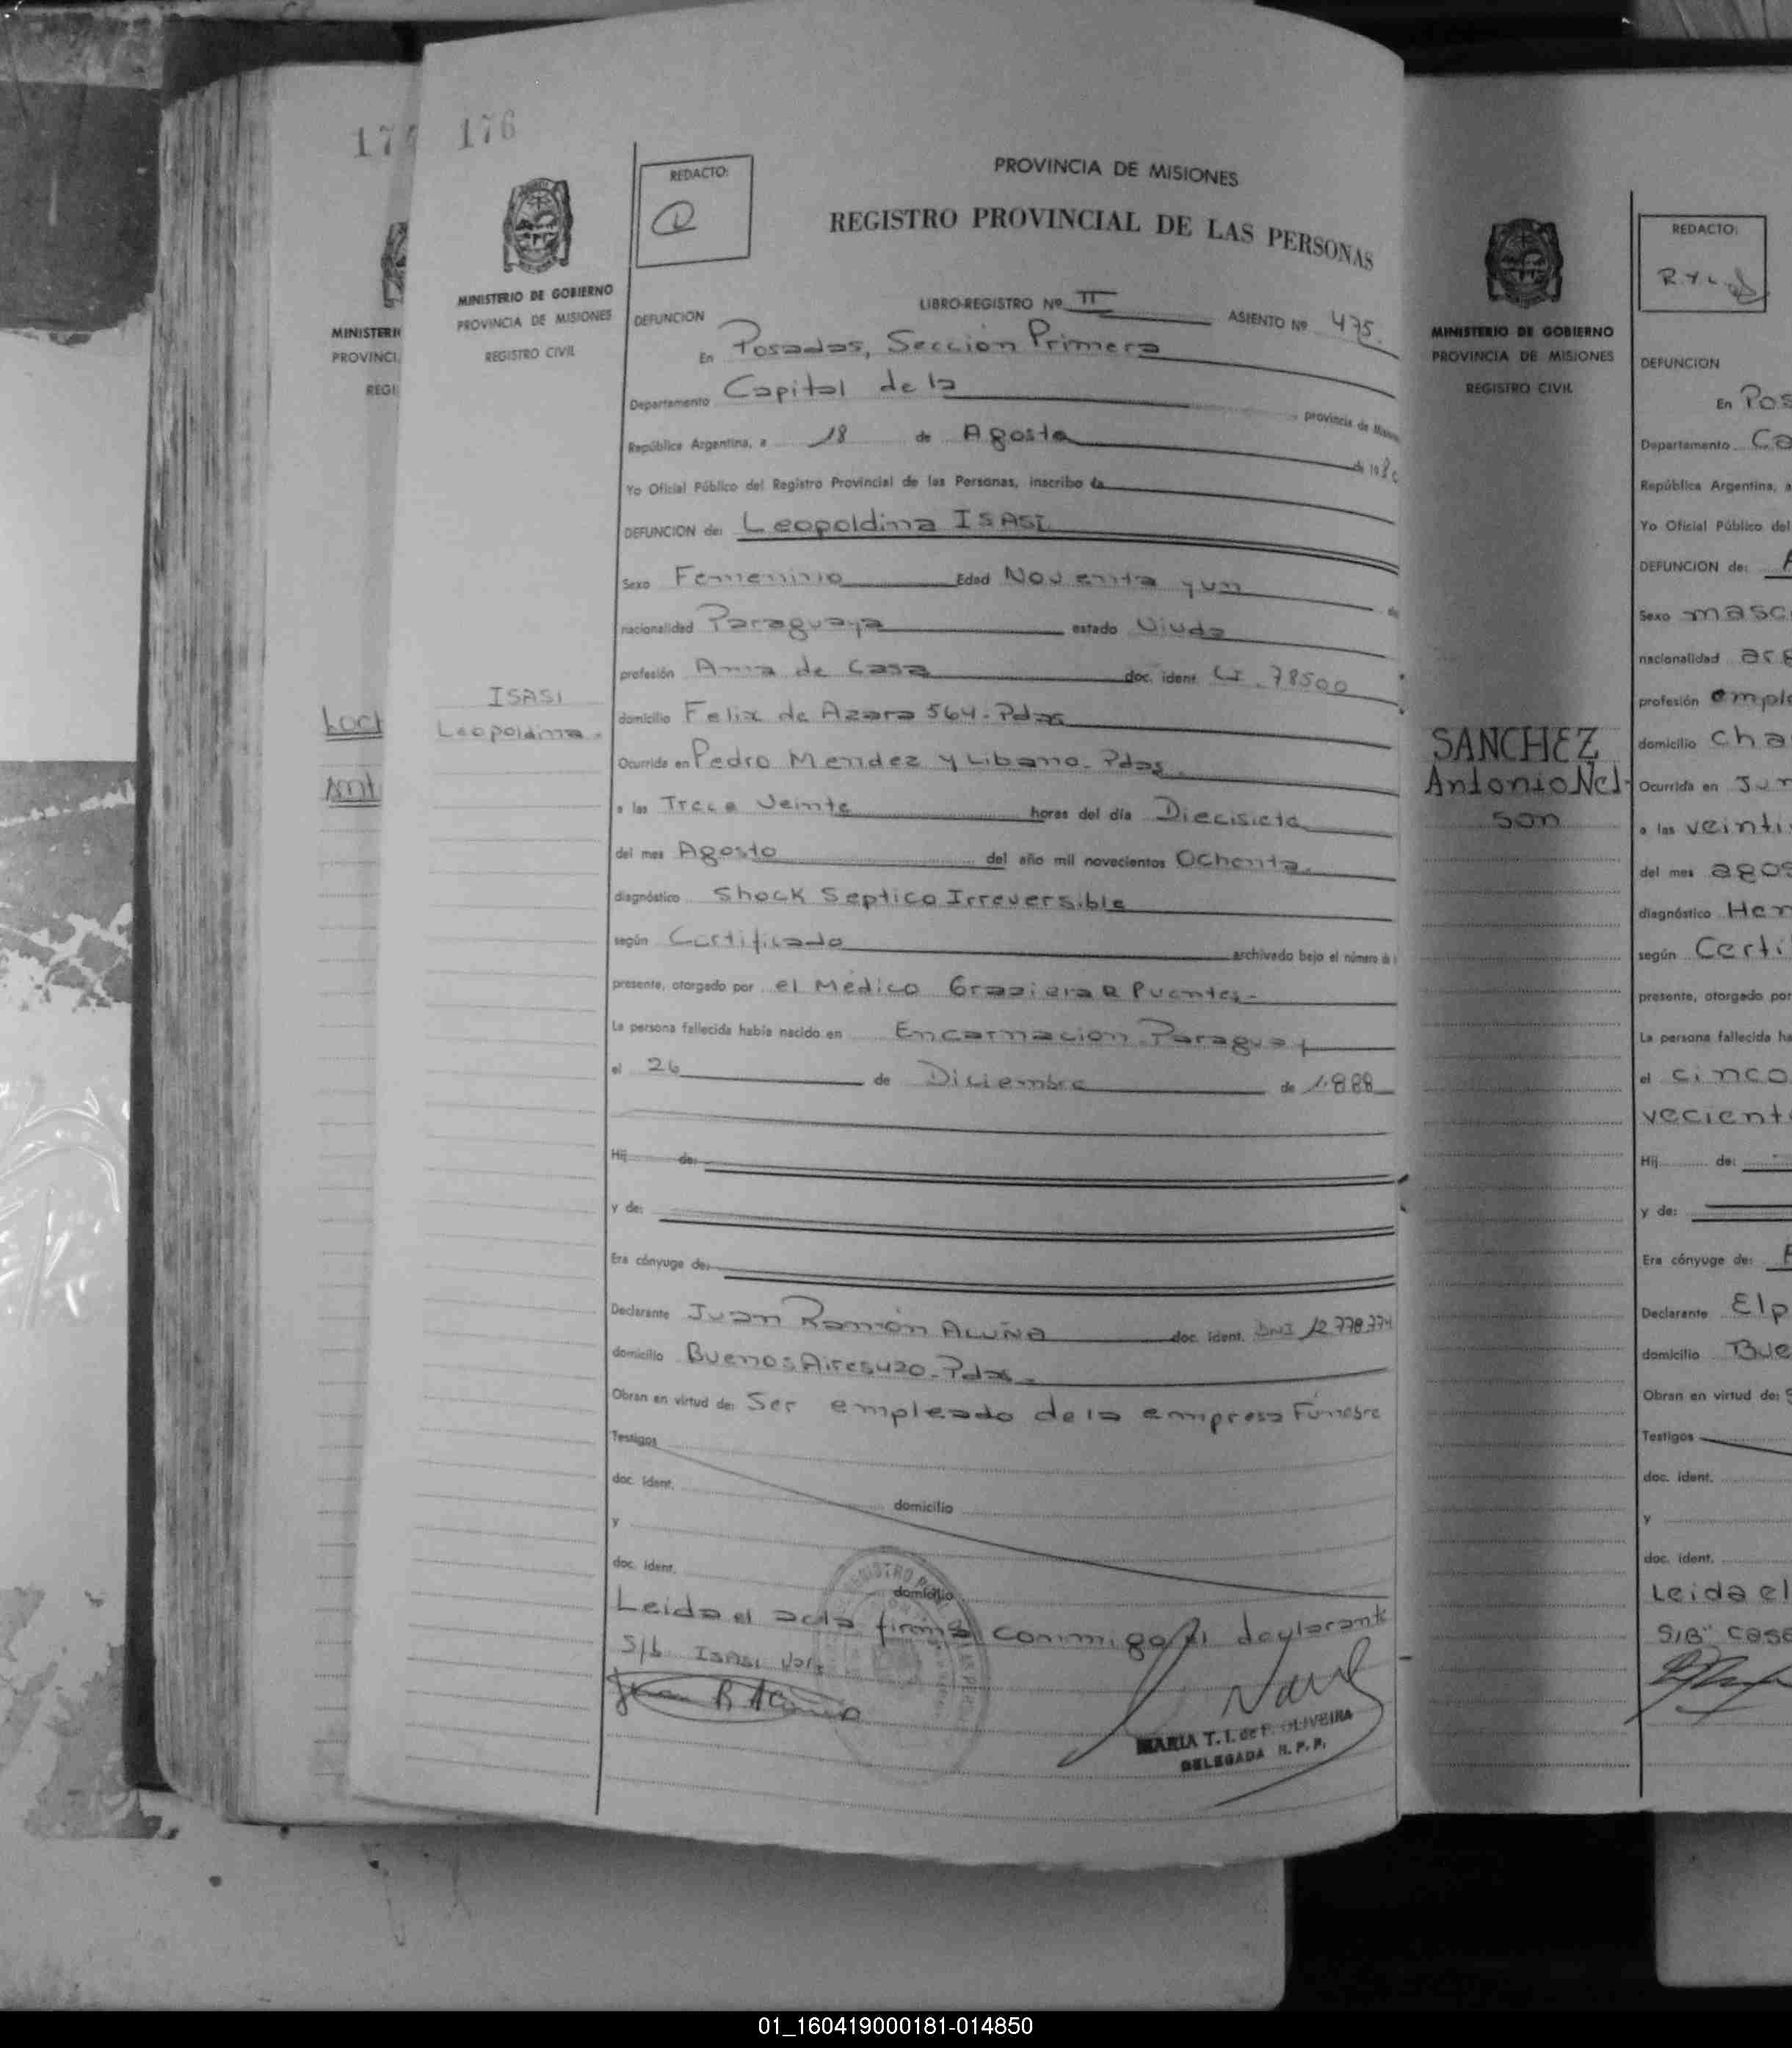 174
176
MINISTERIO DE GOBIERNO
PROVINCIA DE MISIONES
REGISTRO CIVIL
ISASI
Leopoldina.
REDACTO:
PROVINCIA DE MISIONES
REGISTRO PROVINCIAL DE LAS PERSONAS
LIBRO-REGISTRO Nº II ASIENTO Nº 475.
DEFUNCION
En Posadas, Sección Primera
Departamento Capital de la provincia de Misiones
República Argentina, a 18 de Agosto de 1980
Yo Oficial Público del Registro Provincial de las Personas, inscribo la
DEFUNCION de: Leopoldina ISASI
Sexo Femenino Edad Noventa y un de
nacionalidad Paraguaya estado Viuda
profesión Ama de Casa doc. ident. CI. 78500
domicilio Felix de Azara 564-Pdas
Ocurrida en Pedro Mendez y Libano. Pdas.
a las Trece Veinte horas del día Diecisiete
del mes Agosto del año mil novecientos Ochenta.
diagnóstico Shock Septico Irreversible
según Certificado archivado bajo el número de
presente, otorgado por el Médico Graciela R Puentes-
La persona fallecida había nacido en Encarnacion-Paraguay
el 26 de Diciembre de 1.888
Hij de:
y de:
Era cónyuge de:
Declarante Juan Ramón Acuña doc. ident. DNI 12.778.774
domicilio Buenos Aires 420-Pdas.
Obran en virtud de: Ser empleado de la empresa Funebre
Testigos
doc. ident. domicilio
y
doc. ident. domicilio
Leida el acta firma conmigo el declarante
S/b Isasi Vale
Juan R Acuña
MARIA T. I. de F. OLIVEIRA
DELEGADA R. P. P.
MINISTERIO DE GOBIERNO
PROVINCIA DE MISIONES
REGISTRO CIVIL
SANCHEZ
Antonio Nel-
son
REDACTO:
DEFUNCION
En Pos
Departamento Ca
República Argentina, a
Yo Oficial Público del
DEFUNCION de: A
Sexo masc
nacionalidad arg
profesión emple
domicilio cha
Ocurrida en Jun
a las veinti
del mes agos
diagnóstico Hem
según Certi
presente, otorgado por
La persona fallecida ha
el cinco
vecient
Hij de:
y de:
Era cónyuge de:
Declarante Elp
domicilio Bue
Obran en virtud de: S
Testigos
doc. ident.
y
doc. ident.
Leida el
S/B" case
01_160419000181-014850